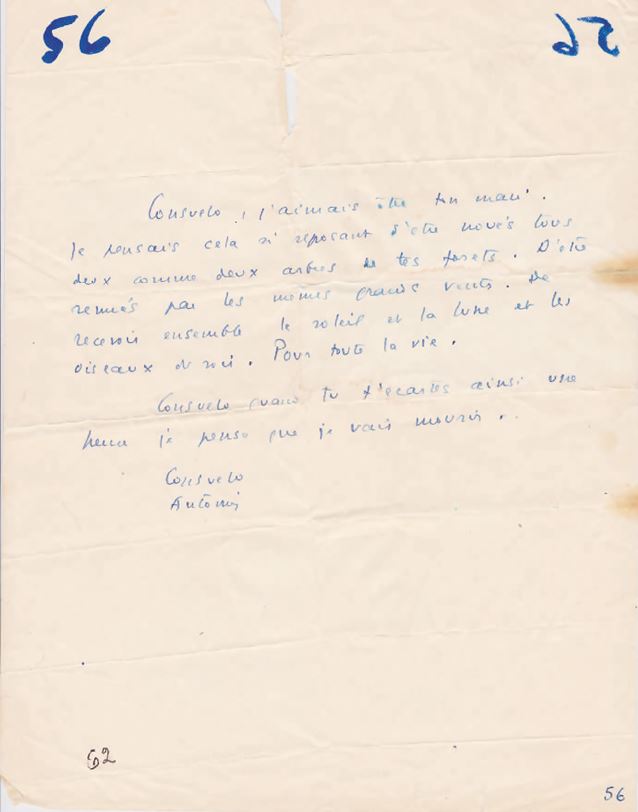 56
56
Consuelo, j'aimais être ton mari.
Je pensais cela si reposant d'être noués tous
deux comme deux arbres de tes forêts. D'être
remués par les mêmes grands vents. De
recevoir ensemble le soleil et la lune et les
oiseaux du soir. Pour toute la vie.
Consuelo quand tu t'écartes ainsi une
heure je pense que je vais mourir..
Consuelo
Antoine
52
56